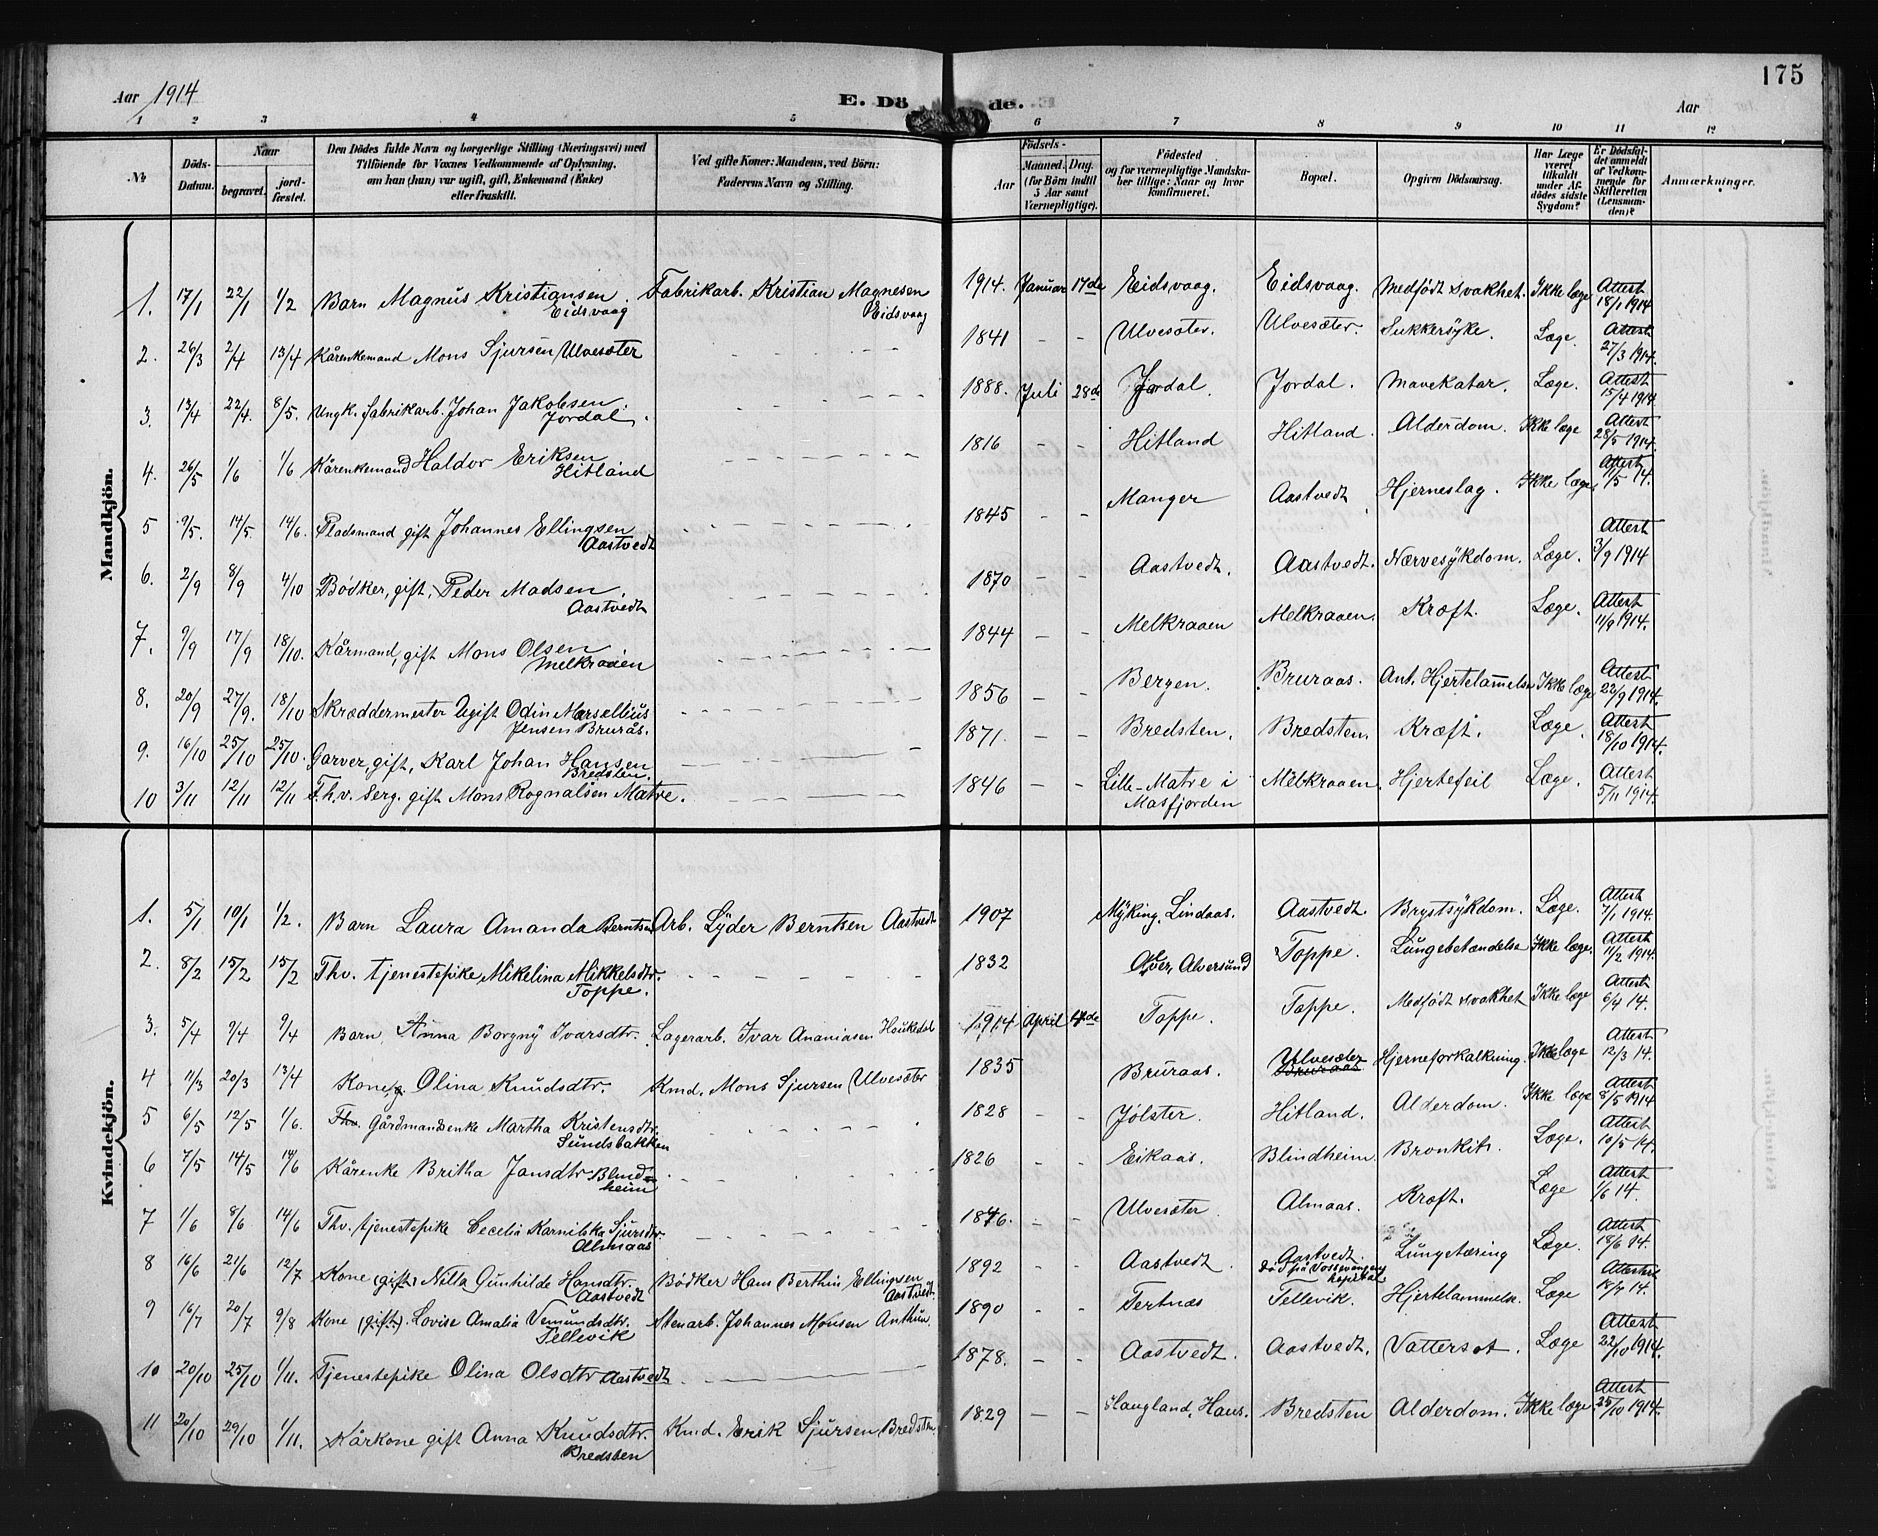 175
Aar 1914
E. Dö de.
Aar
1 2 3 4 5 6 7 8 9 10 11 12
№
Döds-Datum.
Naar
begravet.
jord-fæstet.
Den Dödes fulde Navn og borgerlige Stilling (Næringsvei) med
Tilföiende for Voxnes Vedkommende af Oplysning,
om han (hun) var ugift, gift, Enkemand (Enke)
eller fraskilt.
Ved gifte Koner: Mandens, ved Börn:
Faderens Navn og Stilling.
Födsels-
Aar
Maaned. Dag.
(for Börn indtil
5 Aar samt
Værnepligtige).
Födested
og for værnepligtige Mandska-
ber tillige: Naar og hvor
konfirmeret.
Bopæl.
Opgiven Dödsaarsag.
Har Læge
været
tilkaldt
under Af-
dödes sidste
Sygdom?
Er Dödsfal-
det anmeldt
af Vedkom-
mende for
Skifteretten
(Lensman-
den)?
Anmærkninger.
Mandkjön.
1. 17/1 22/1 1/2 Barn Magnus Kristiansen Eidsvaag Fabrikarb. Kristian Magnesen Eidsvaag 1914. Januar 17de Eidsvaag. Eidsvaag. Medfödt svakhet. Ikke læge Attest 18/1 1914
2. 26/3 2/4 13/4 Kårenkemand Mons Sjursen Ulvesæter 1841 Ulvesæter. Ulvesæter. Sukkersyke. Læge. Attest 27/3 1914.
3. 13/4 22/4. 8/5. Ungk. fabrikarb. Johan Jakobsen Jordal. 1888. Juli 28de Jordal. Jordal. Mavekatar. Læge. Attest 15/4 1914.
4. 26/5 1/6 1/6 Kårenkemand Haldor Eriksen Hitland 1816 Hitland Hitland. Alderdom. Ikke læge Attest 28/5 1914.
5 9/5. 14/5. 14/6. Pladsmand gift Johannes Ellingsen Aastvedt 1845 Manger Aastvedt Hjerneslag. Ikke læge Attest 11/5 14.
6. 2/9 8/9 4/10 Bödker, gift, Peder Madsen. Aastvedt 1870 Aastvedt. Aastvedt. Nærvesykdom. Læge. Attest 3/9 1914
7. 9/9 17/9 18/10. Kårmand, gift Mons Olsen Melkraaen 1844 Melkraaen Melkraaen. Kræft. Læge. Attest 11/9 1914.
8. 20/9 27/9. 18/10 Skræddermester Ugift Odin Marsellius Jensen Brurås. 1856 Bergen. Bruraas. Ant. Hjertelammelse Ikke læge Attest 22/9 1914.
9. 16/10 25/10 25/10. Garver, gift, Karl Johan Hansen Bredsten. 1871. Bredsten. Bredsten. Kræft. Læge. Attest 18/10 1914.
10 3/11 12/11 12/11 F.h.v. Serg. gift Mons Rognalsen Matre. 1846 Lille-Matre i Masfjorden Melkraaen. Hjertefeil Læge. Attest 5/11 1914.
Kvindekjön.
1. 5/1 10/1 1/2. Barn Laura Amanda Berntsen Arb. Lyder Berntsen Aastvedt 1907 Myking, Lindaas. Aastvedt. Brystsykdom. Læge. Attest 7/1 1914.
2. 8/2 15/2 15/2 Fhv. tjenestepike Mikelina Mikkelsdtr. Toppe. 1832 Alver, Alversund Toppe. Lungebetændelse Ikke læge. Attest 11/2 1914.
3. 5/4 9/4 9/4 Barn, Anna Borgny Ivarsdtr. Lagerarb. Ivar Ananiasen 1914 April Toppe. Toppe. Medfödt svakhet Ikke læge Attest 6/4 14.
4 11/3 20/3 13/4 Kone, g. Olina Knudsdtr. Kmd. Mons Sjursen Ulvesæter 1835 Bruraas. Ulvesæter Bruraas Hjerneforkalkning. Ikke læge Attest 12/3 14.
5 6/5 12/5 1/6. Fhv. Gårdmandsenke Martha Kristensdtr. Sundsbakken 1828 Jölster. Hitland. Alderdom. Ikke læge Attest 8/5 1914
6 7/5 14/5 14/6 Kårenke Britha Jansdtr Blindheim 1826 Eikaas. Blindheim. Bronkit. Læge. Attest 10/5 14.
7 1/6 8/6 14/6 Fhv. tjenestepike Cecelia Karnilska Sjursdtr. Almaas 1846. Ulvesæter Almaas. Kræft. Læge Attest 1/6 14.
8 16/6 21/6 12/7 Kone (gift) Nilla Gunhilde Hansdtr. Aastvedt Bödker Hans Berthin Ellingsen Aastvedt. 1892 Aastvedt. Aastvedt. Död på Vossevangen hospital Lungetæring Læge. Attest 18/6 14.
9 16/7 20/7 9/8 Kone (gift). Lovise Amalia Vemundsdtr. Tellevik Stenarb. Johannes Monsen Anthun. 1890 Tertnæs Tellevik. Hjertelammelse. Læge Attest 18/7 14.
10 20/10 25/10 1/11. Tjenestepike Olina Olsdtr Aastvedt 1878. Aastvedt. Aastvedt. Vattersot. Læge Attest 22/10 1914.
11 20/10 29/10 1/11. Kårkone gift Anna Knudsdtr. Bredsten Kmd. Erik Sjursen Bredsten 1829 Haugland, Haus. Bredsten Alderdom. Ikke læge Attest 25/10 1914.